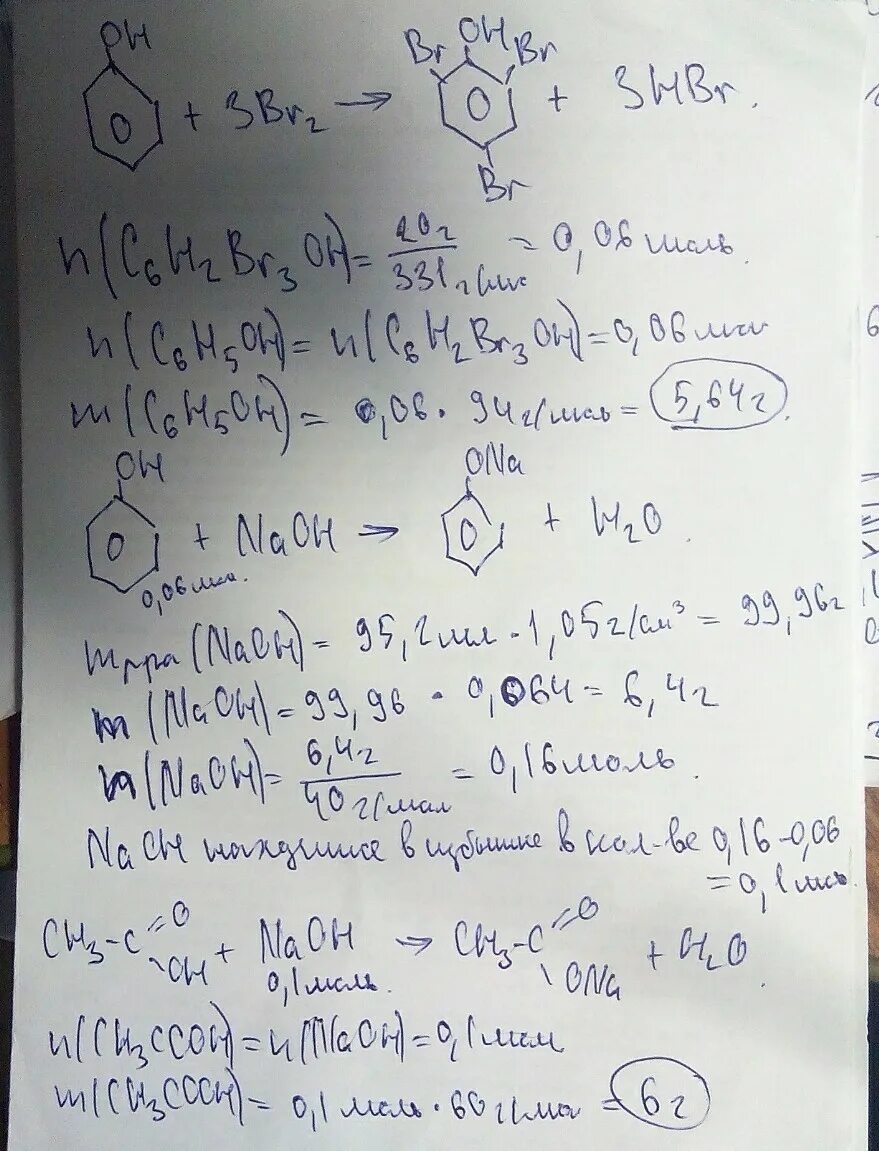 OH
+ 3Br₂ →
Br OH Br
+ 3HBr.
Br
n(C₆H₂Br₃OH) = 20г / 331 г/мол = 0,06 моль.
n(C₆H₅OH) = n(C₆H₂Br₃OH) = 0,06 мол
m(C₆H₅OH) = 0,06 · 94 г/моль = 5,64 г.
OH
+ NaOH →
0,06 мол.
ONa
+ H₂O.
m р-ра (NaOH) = 95,2 мл · 1,05 г/см³ = 99,96 г
m(NaOH) = 99,96 · 0,064 = 6,4 г
n(NaOH) = 6,4 г / 40 г/мол = 0,16 моль.
NaOH в избытке в кол-ве 0,16 - 0,06
= 0,1 моль.
CH₃-C=O OH + NaOH → CH₃-C=O ONa + H₂O.
0,1 моль.
n(CH₃COOH) = n(NaOH) = 0,1 мол
m(CH₃COOH) = 0,1 моль · 60 г/мол = 6 г